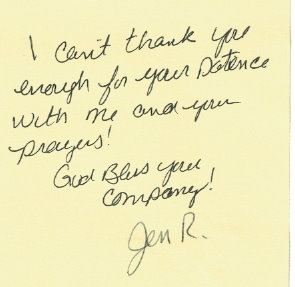 I can't thank you
enough for your Patence
with me and your
prayers!
God Bless your
company!
Jen R.